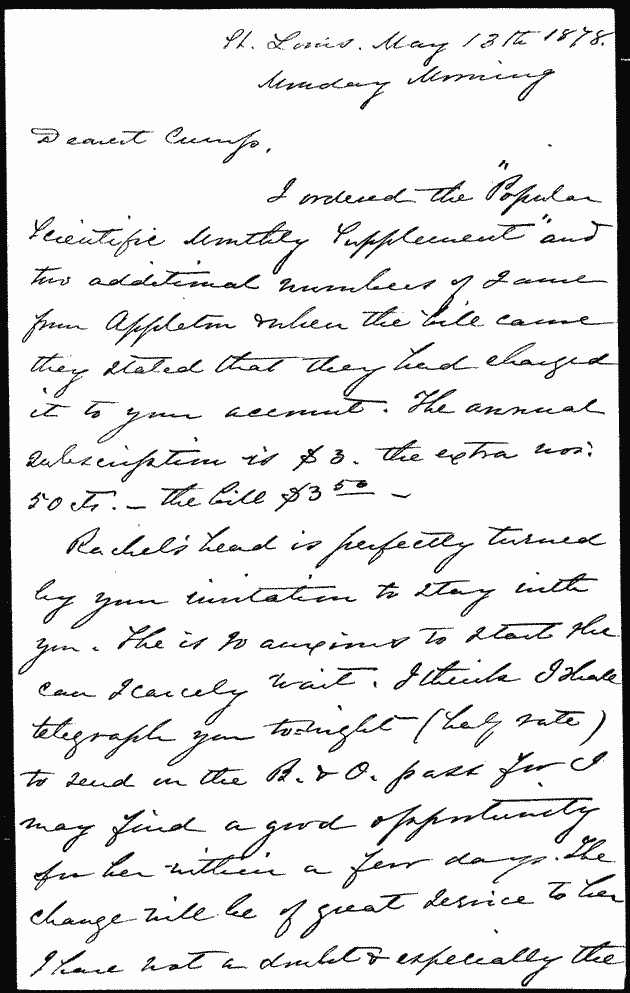 St. Louis. May 13th 1878.
Monday Morning
Dearest Cump,
I ordered the "Popular
Scientific Monthly Supplement" and
two additional numbers of same
from Appleton & when the bill came
they stated that they had charged
it to your account. The annual
subscription is $3. the extra nos.
50 cts. – the bill $3 50 –
Rachel's head is perfectly turned
by your invitation to stay with
you. She is so anxious to start she
can scarcely wait. I think I shall
telegraph you to-night (half rate)
to send on the B. & O. pass for I
may find a good opportunity
for her within a few days. The
change will be of great service to her
I have not a doubt & especially the